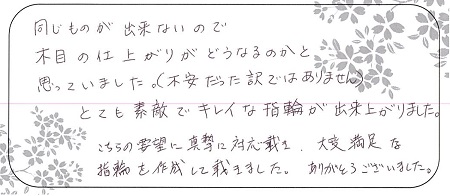 同じものが出来ないので
木目の仕上がりがどうなるのかと
思っていました。(不安だった訳ではありません)
とても素敵でキレイな指輪が出来上がりました。
こちらの要望に真摯に対応戴き、大変満足な
指輪を作成して戴きました。ありがとうございました。